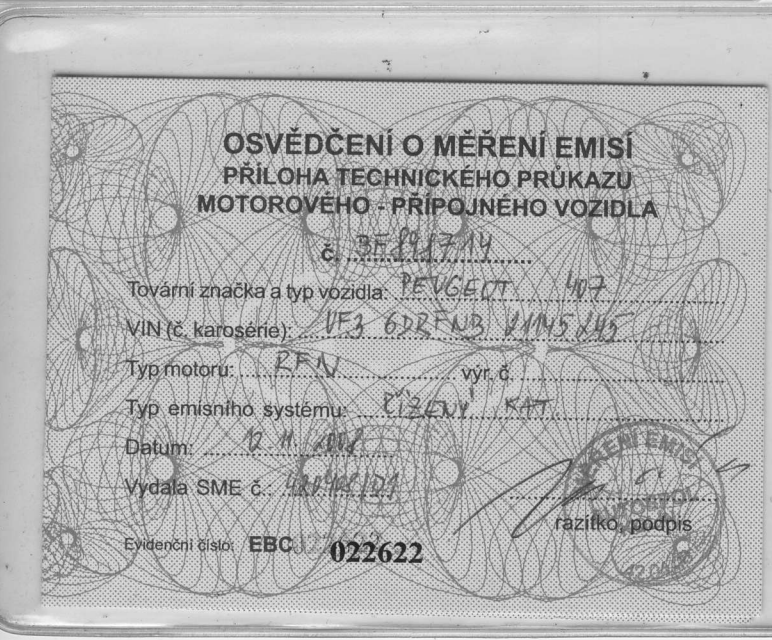 OSVĚDČENÍ O MĚŘENÍ EMISÍ
PŘÍLOHA TECHNICKÉHO PRŮKAZU
MOTOROVÉHO - PŘÍPOJNÉHO VOZIDLA
č.
Tovární značka a typ vozidla: PEUGEOT 407
VIN (č. karosérie): VF3 6DRFNB 21145245
Typ motoru: RFN výr. č.
Typ emisního systému: ŘÍZENÝ KAT
Datum: 12 11 2008
Vydala SME č.:
razítko, podpis
Evidenční číslo: EBC 022622
MĚŘENÍ EMISÍ